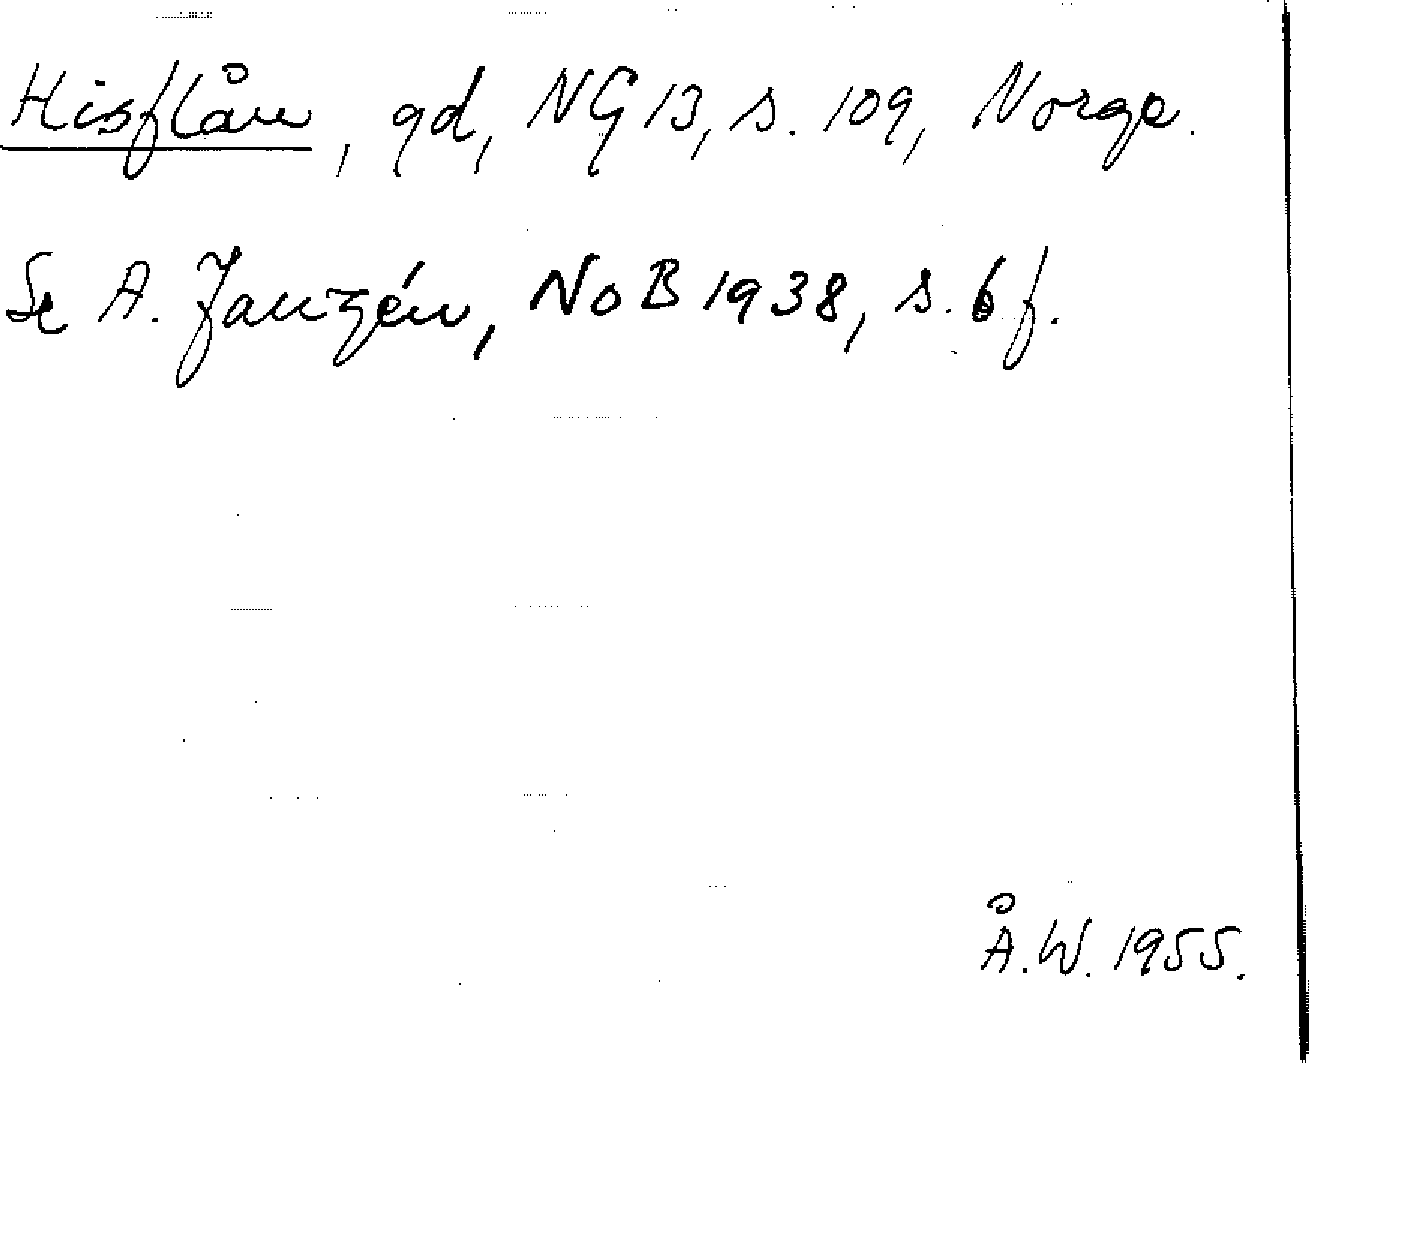 Hisflåen, gd, NG 13, s. 109, Norge.
Se A. Janzén, NoB 1938, s. 6 f.
Å.W. 1955.